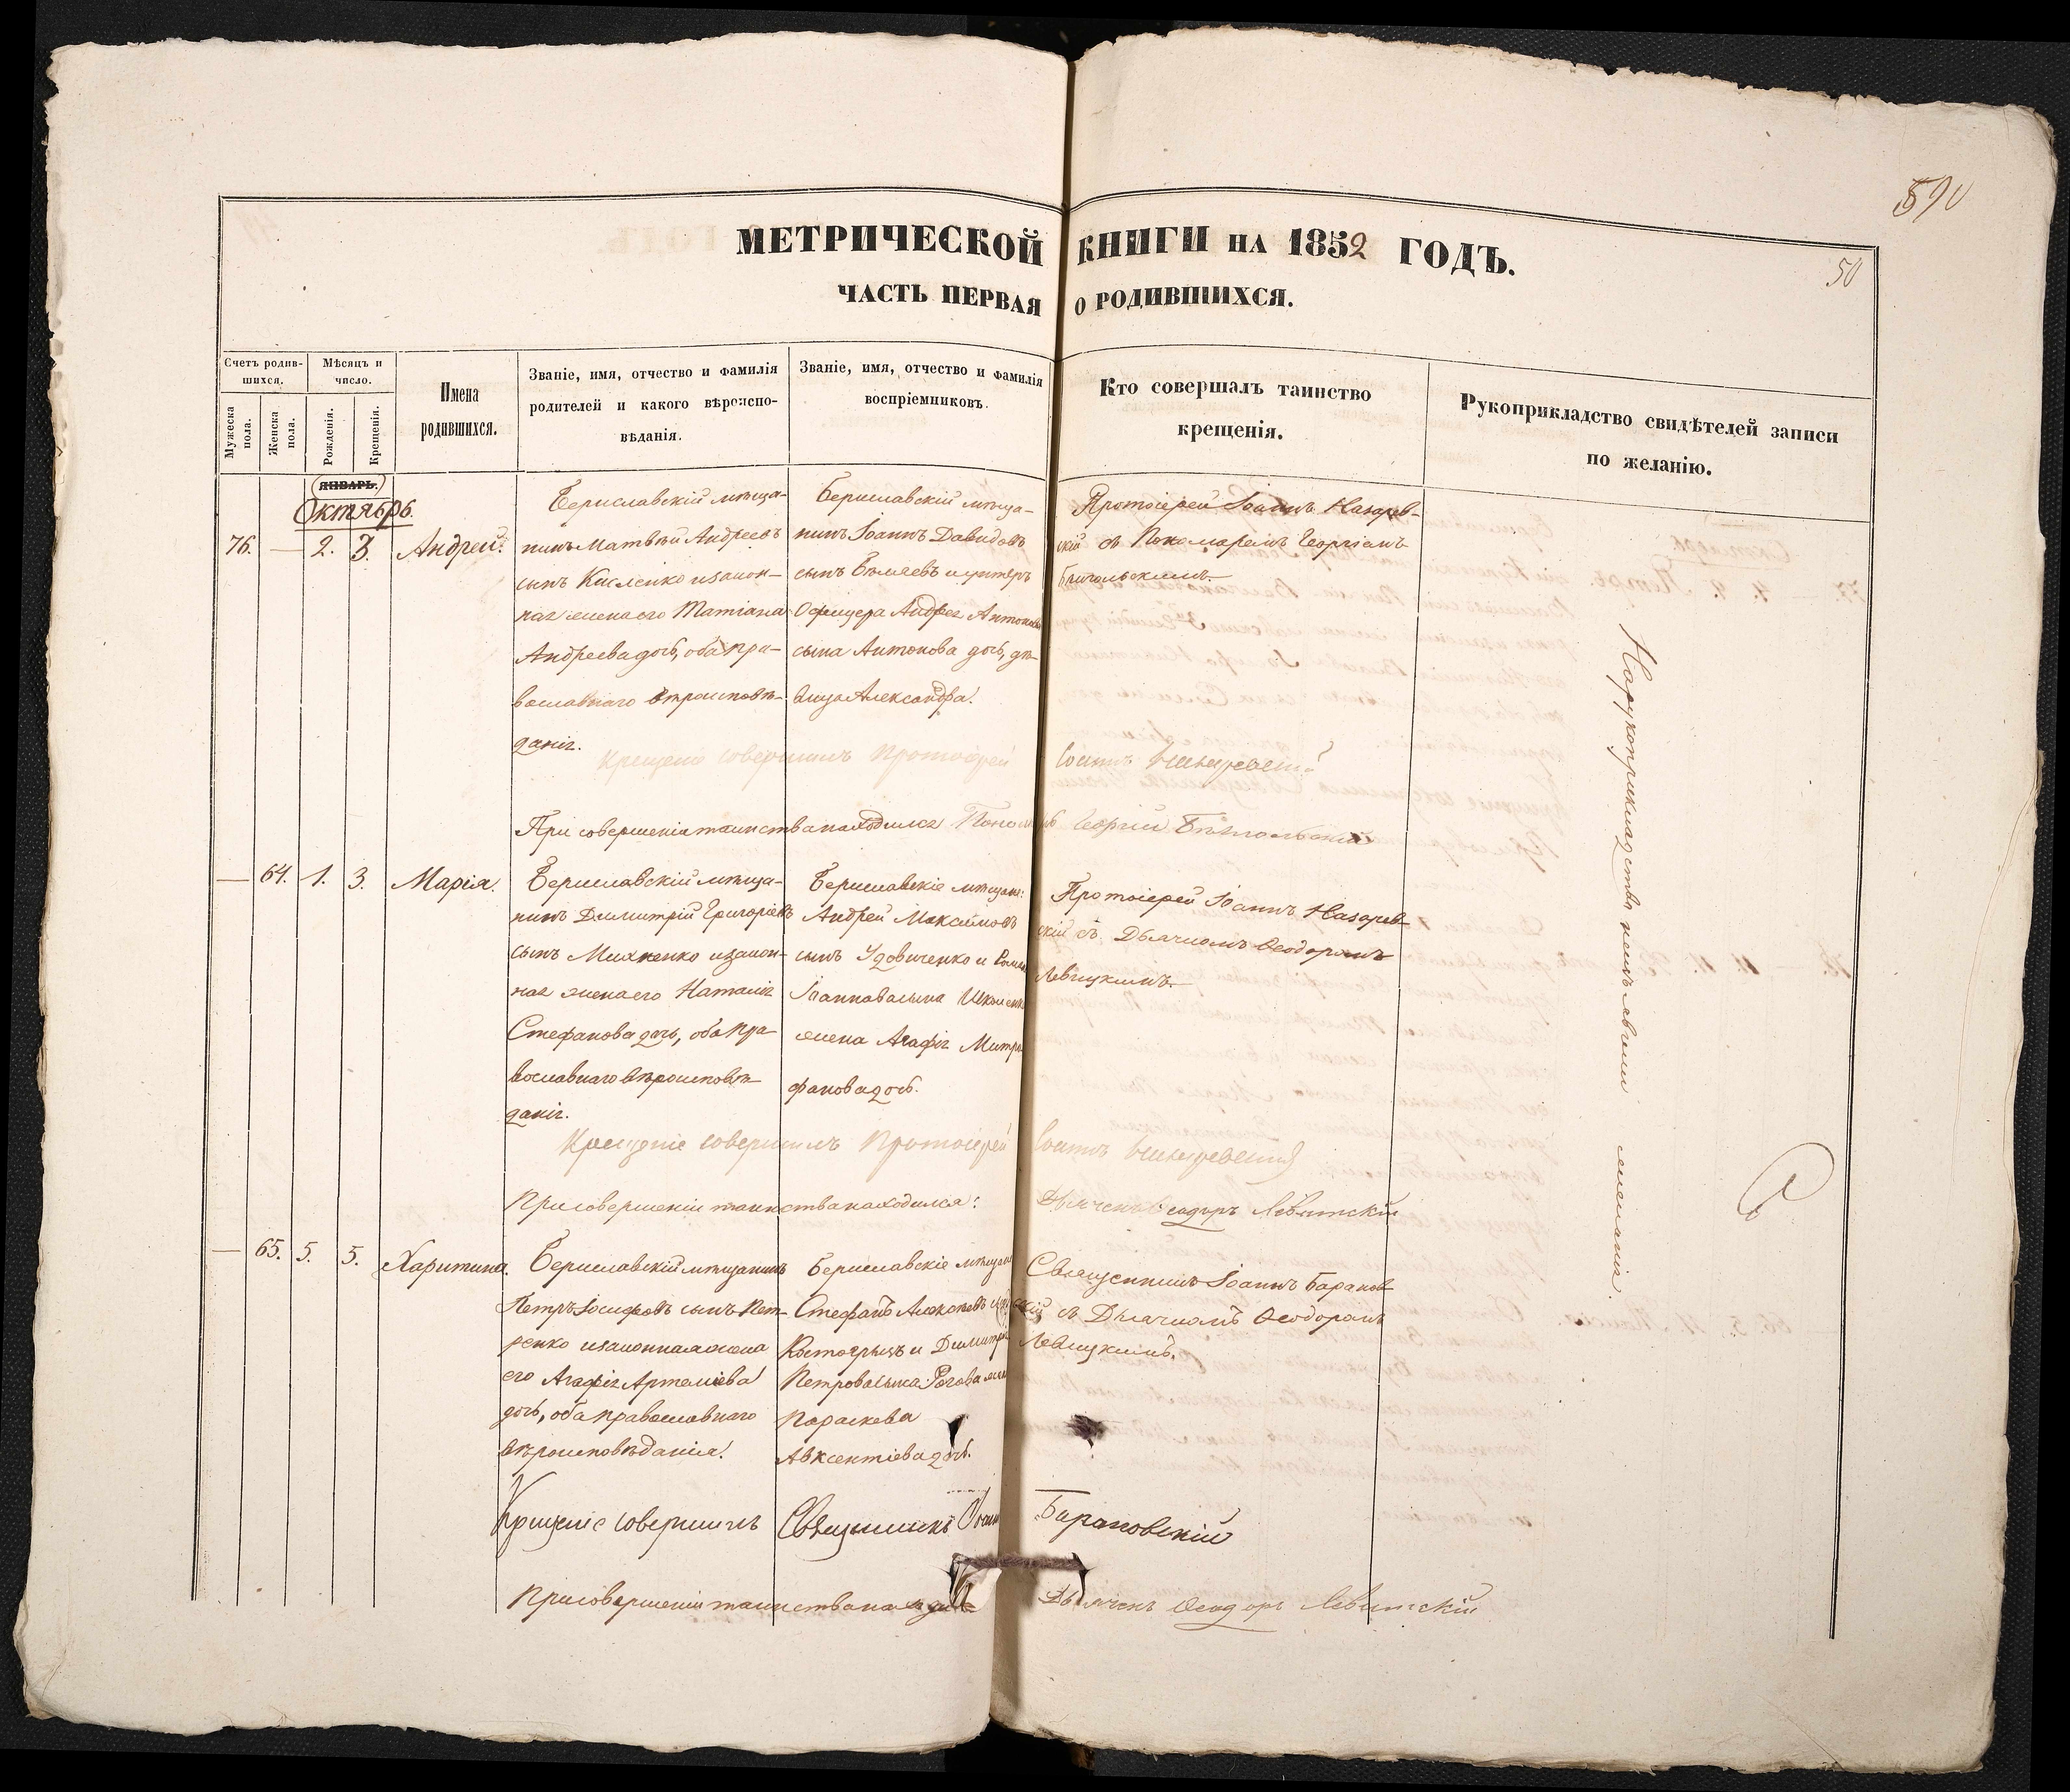 590
МЕТРИЧЕСКОЙ КНИГИ НА 1852 ГОДЪ.
50
ЧАСТЬ ПЕРВАЯ О РОДИВШИХСЯ.
Счетъ родив-
шихся.
Мужеска пола.
Женска пола.
Мѣсяцъ и
число.
Рожденія.
Крещенія.
Имена
родившихся.
Званіе, имя, отчество и фамилія
родителей и какого вѣроиспо-
вѣданія.
Званіе, имя, отчество и фамилія
воспріемниковъ.
Кто совершалъ таинство
крещенія.
Рукоприкладство свидѣтелей записи
по желанію.
ЯНВАРЬ.
Октябрь.
76. — 2. 3. Андрей.
Бериславскій мѣща-
нинъ Матвѣй Андреевъ
сынъ Кисленко изакон-
ная жена его Татіана
Андреева дочь, оба пра-
вославнаго вѣроисповѣ-
данія.
Бериславскій мѣща-
нинъ Іоаннъ Давидовъ
сынъ Бѣляевъ и унтеръ
Офицера Андрея Антонова
сына Антонова дочь, дѣ-
вица Александра.
Протоіерей Іоаннъ Назарев-
скій съ Пономаремъ Георгіемъ
Крещеніе совершилъ Протоіерей Іоаннъ
При совершеніи таинства находился Пономарь Георгій
— 64. 1. 3. Марія.
Бериславскій мѣща-
нинъ Димитрій Григоріевъ
сынъ Михненко изакон-
ная жена его Наталія
Стефанова дочь, оба пра-
вославнаго вѣроисповѣ-
данія.
Бериславскіе мѣщане:
Андрей Максимовъ
сынъ Удовиченко и
Іоаннова сына
жена Агафія Митро-
фанова дочь.
Протоіерей Іоаннъ Назарев-
скій съ Дьячкомъ Ѳеодоромъ
Левицкимъ.
Крещеніе совершилъ Протоіерей Іоаннъ
При совершеніи таинства находился: Дьячекъ Ѳеодоръ Левитскій
— 65. 5. 5. Харитина.
Бериславскій мѣщанинъ
Петръ Іосифовъ сынъ Пет-
ренко изаконная жена
его Агафія Артеміева
дочь, оба православнаго
вѣроисповѣданія.
Бериславскіе мѣщане
Стефанъ
Костогрызъ и Димитрія
Петрова сына Рогова жена
Параскева
Авксентіева дочь.
Священникъ Іоаннъ Баранов-
скій съ Дьячкомъ Ѳеодоромъ
Левицкимъ.
Крещеніе совершилъ Священникъ Іоаннъ Барановскій
При совершеніи таинства находился Дьячекъ Ѳеодоръ Левитскій
На рукоприкладство не изъявили желанія.